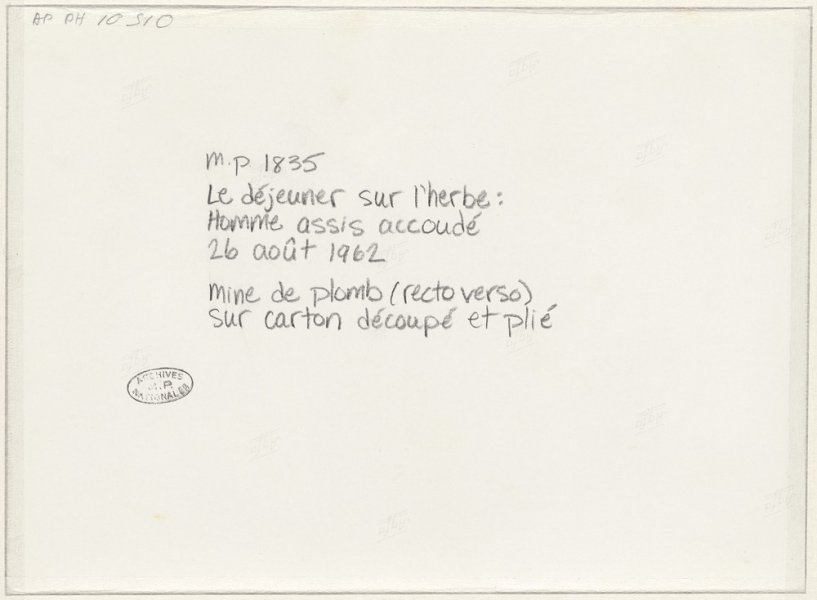 AP PH 10 510
m.p. 1835
Le déjeuner sur l'herbe :
Homme assis accoudé
26 août 1962
mine de plomb (recto verso)
sur carton découpé et plié
ARCHIVES
NATIONALES